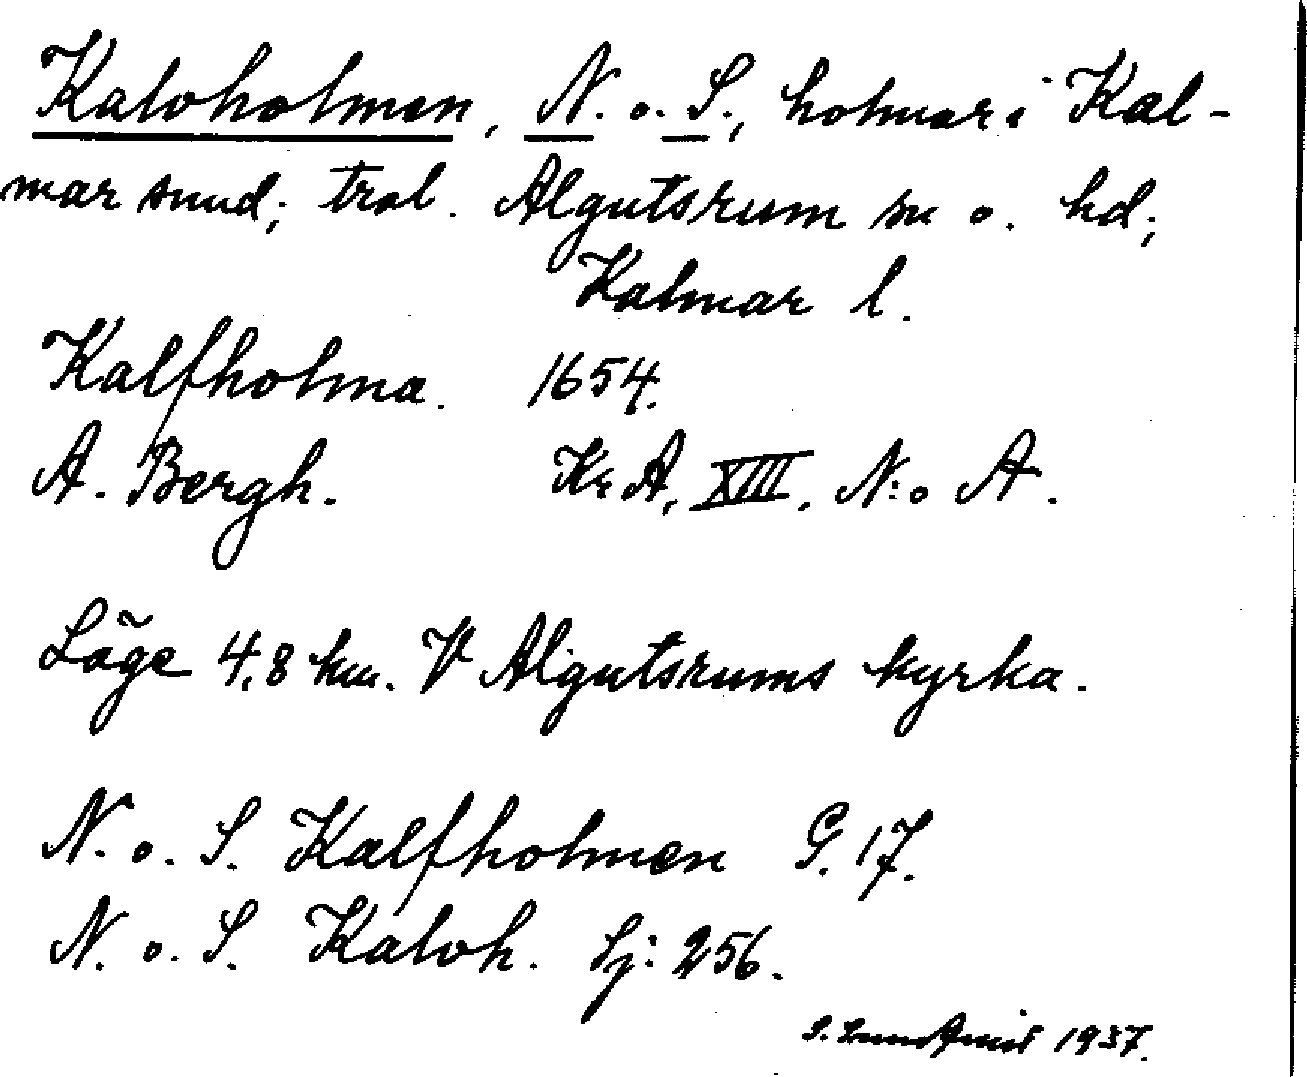 Kalvholmen, N. o. S., holmar i Kal-
mar sund; trol. Algutsrum sn o. hd;
Kalmar l.
Kalfholma. 1654.
A. Bergh. KrA, XIII, N:o A.
Läge 4,8 km. V Algutsrums kyrka.
N. o. S. Kalfholmen G. 17.
N. o. S. Kalvh. Sj: 256.
S. Lundqvist 1937.